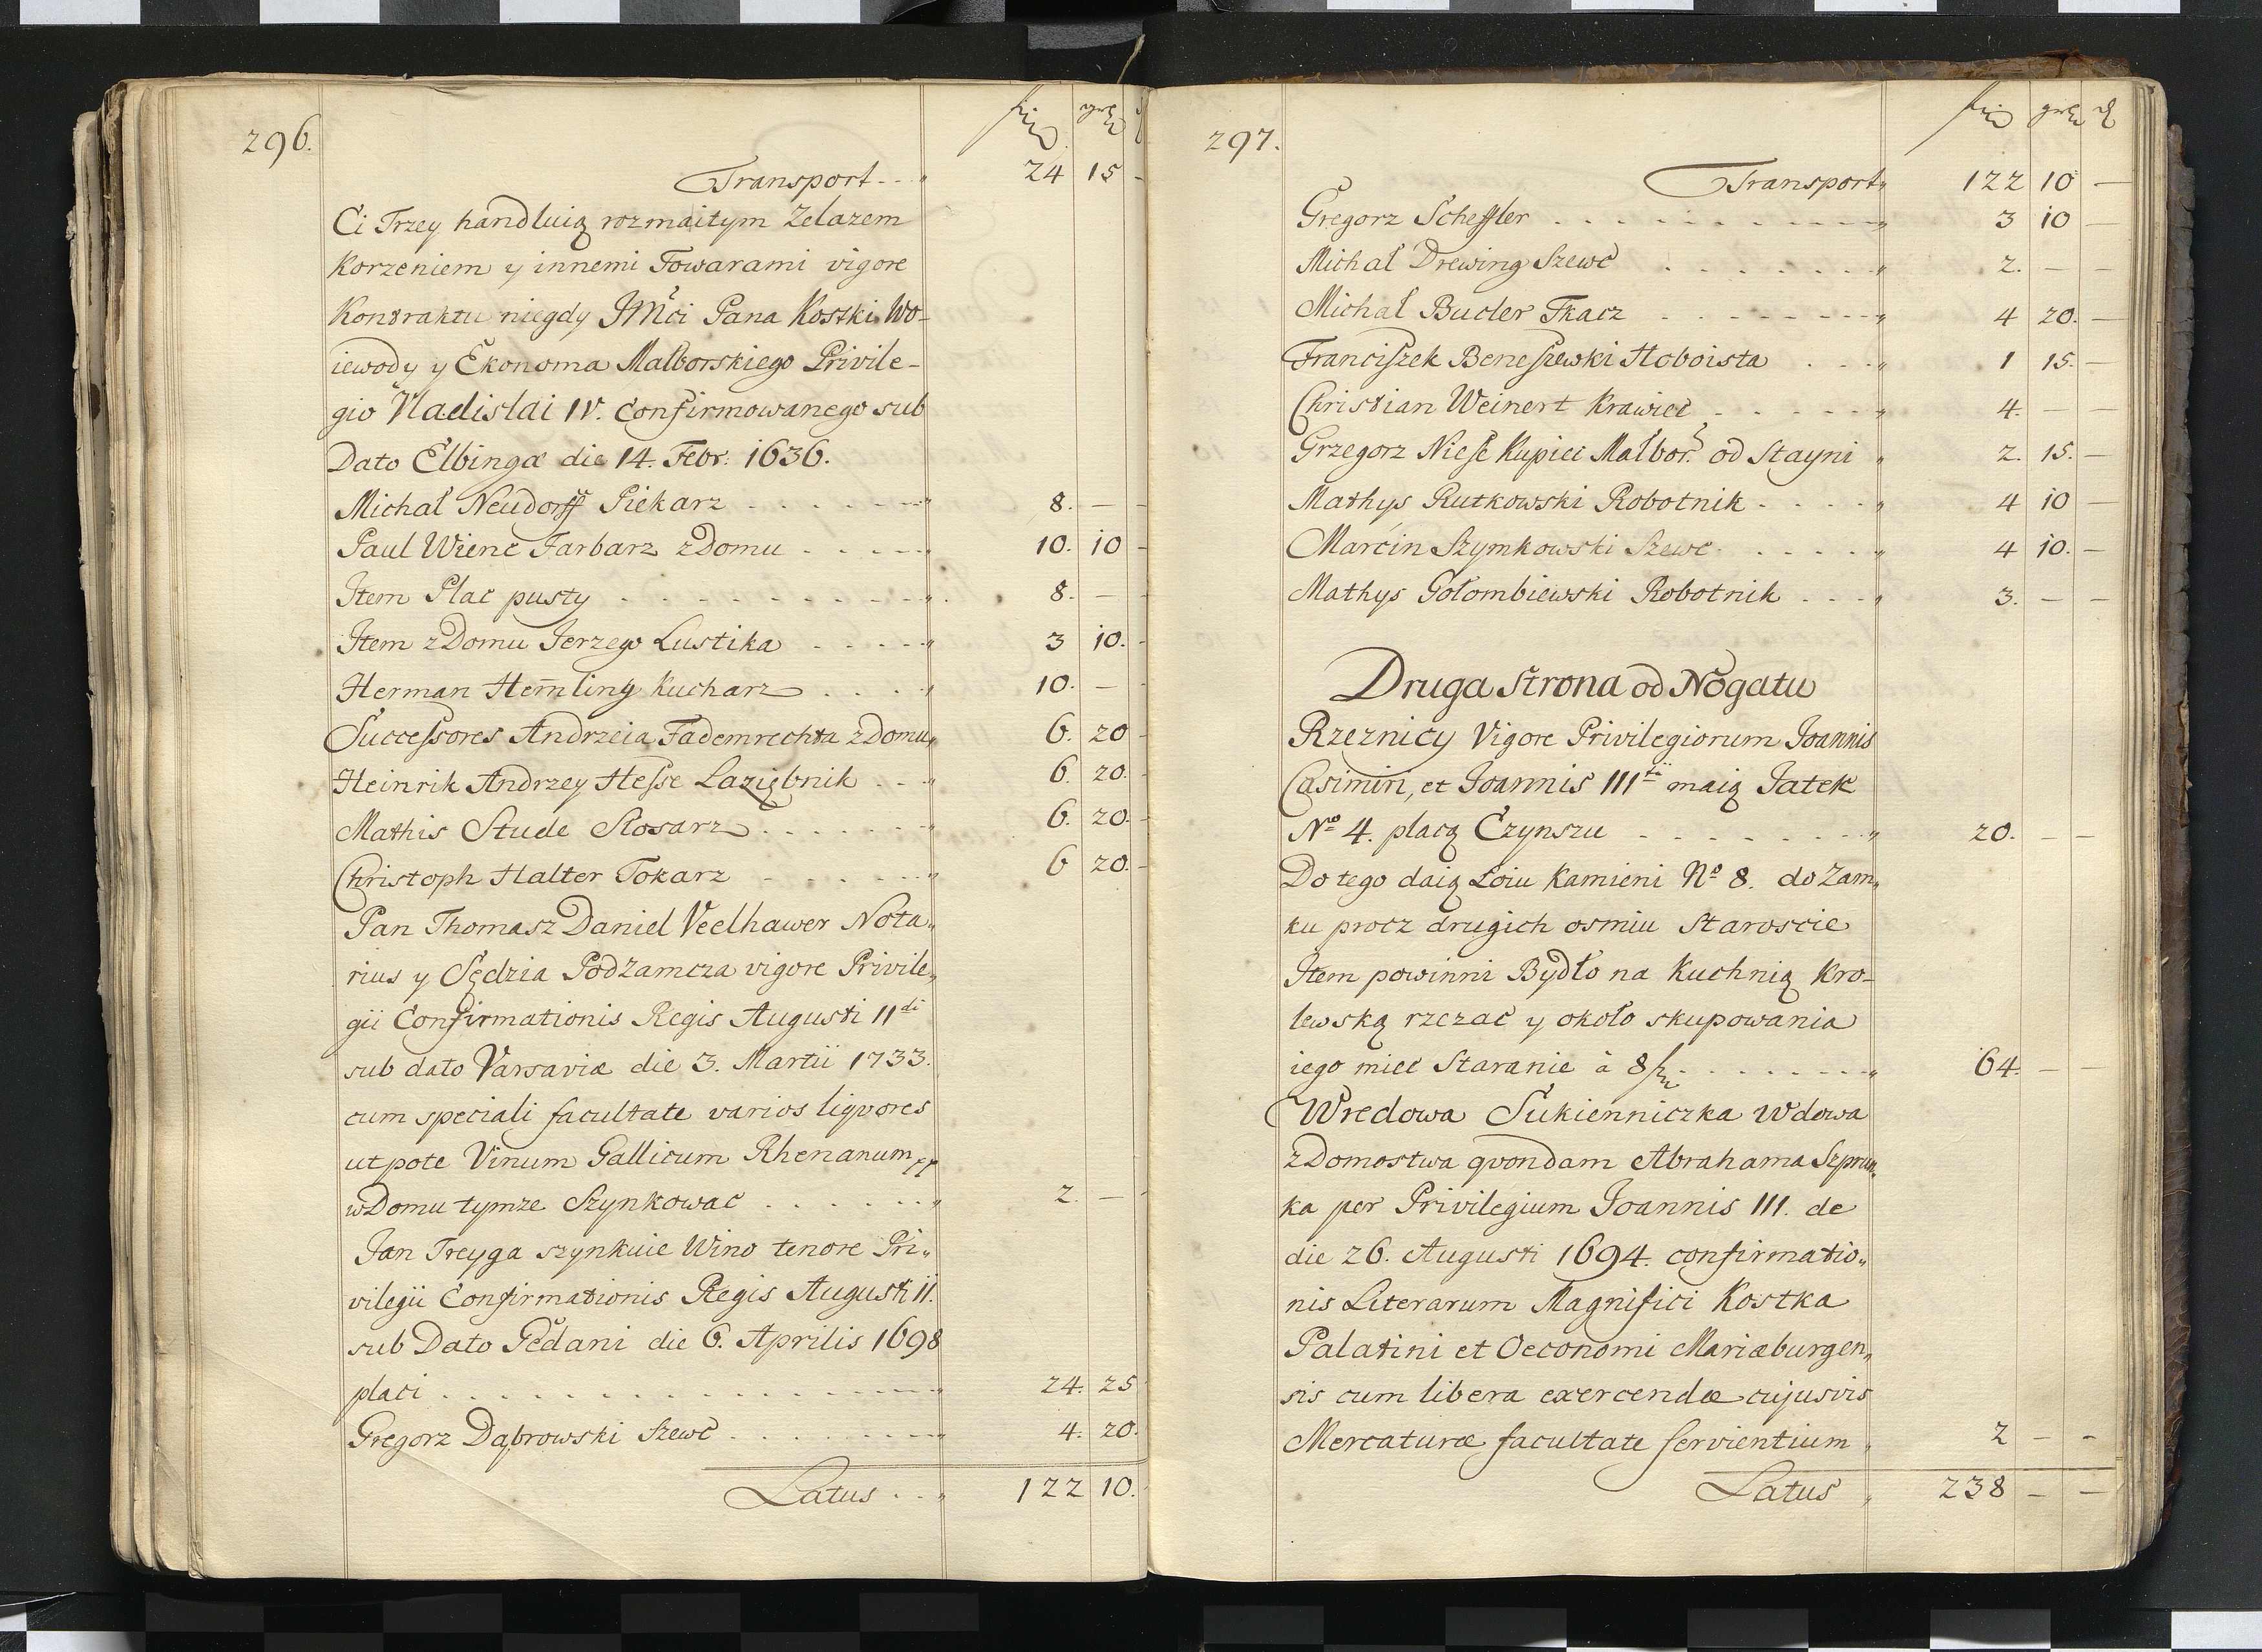 296.
Transport 24 15 -
Ci Trzey handluią rozmaitym Zelazem
Korzeniem y innemi Towarami vigore
Kontraktu niegdy JMci Pana Kostki Wo-
iewody y Ekonoma Malborskiego Privile-
gio Vladislai IV. Confirmowanego sub
Dato Elbingæ die 14. Febr: 1636.
Michał Neudorff Piekarz 8. — -
Paul Wienc Farbarz z Domu 10. 10 -
Item Plac pusty 8. — -
Item z Domu Jerzego Lustika 3 10. -
Herman Hem̄ling Kucharz 10. — -
Successores Andrzeia Fademrechta z Domu 6. 20 -
Heinrik Andrzey Hesse Łaziębnik 6. 20. -
Mathis Stude Slosarz 6. 20. -
Christoph Halter Tokarz 6 20. -
Pan Thomasz Daniel Veelhawer Nota„
rius y Sędzia Podzamcza vigore Privile„
gii Confirmationis Regis Augusti II di
sub dato Varsaviæ die 3. Martii 1733.
cum speciali facultate varios liqvores
utpote Vinum Gallicum Rhenanum
w Domu tymze Szynkowac 2. — -
Jan Treyga szynkuie Wino tenore Pri„
vilegii Confirmationis Regis Augusti II.
sub Dato Gedani die 6. Aprilis 1698
placi 24. 25
Gregorz Dąbrowski Szewc 4. 20.
Latus 122 10.
297.
Transport 122 10 —
Gregorz Scheffler 3 10 —
Michał Drewing Szewc 2. — —
Michał Bucler Tkacz 4 20. —
Franciszek Beneszewski Hoboista 1 15. —
Christian Weinert Krawiec 4. — —
Grzegorz Niese Kupiec Malbor. od Stayni 2. 15. —
Mathys Rutkowski Robotnik 4 10 —
Marcin Szymkowski Szewc 4 10. —
Mathys Gołombiewski Robotnik 3. — —
Druga Strona od Nogatu
Rzeznicy Vigore Privilegiorum Joannis
Casimiri, et Joannis III tii maią Jatek
No 4. placą Czynszu 20. — —
Do tego daią Łoiu Kamieni No 8. do Zam„
ku procz drugich osmiu Staroscie
Item powinni Bydło na Kuchnią Kro-
lewską rzezac y około skupowania
iego miec Staranie à 8 64. — —
Wredowa Sukienniczka Wdowa
z Domostwa qvondam Abrahama Szprun„
ka per Privilegium Joannis III. de
die 26. Augusti 1694. confirmatio„
nis Literarum Magnifici Kostka
Palatini et Oeconomi Mariæburgen„
sis cum libera exercendæ cujusvis
Mercaturæ facultate servientium 2 — -
Latus 238 — —